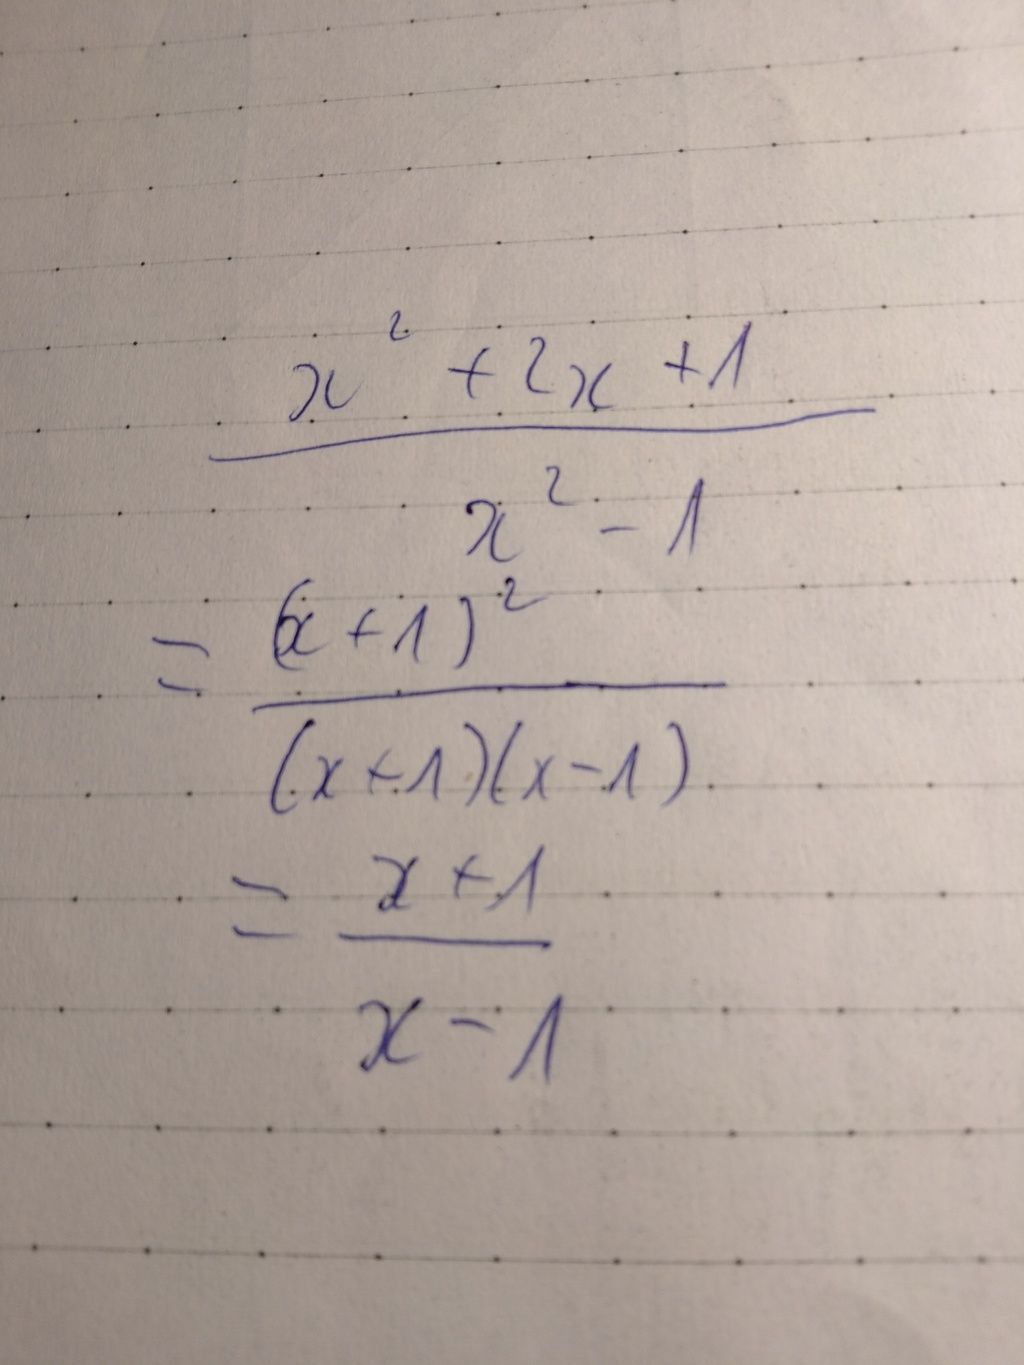 x² + 2x + 1
x² - 1
= (x + 1)²
(x + 1)(x - 1)
= x + 1
x - 1